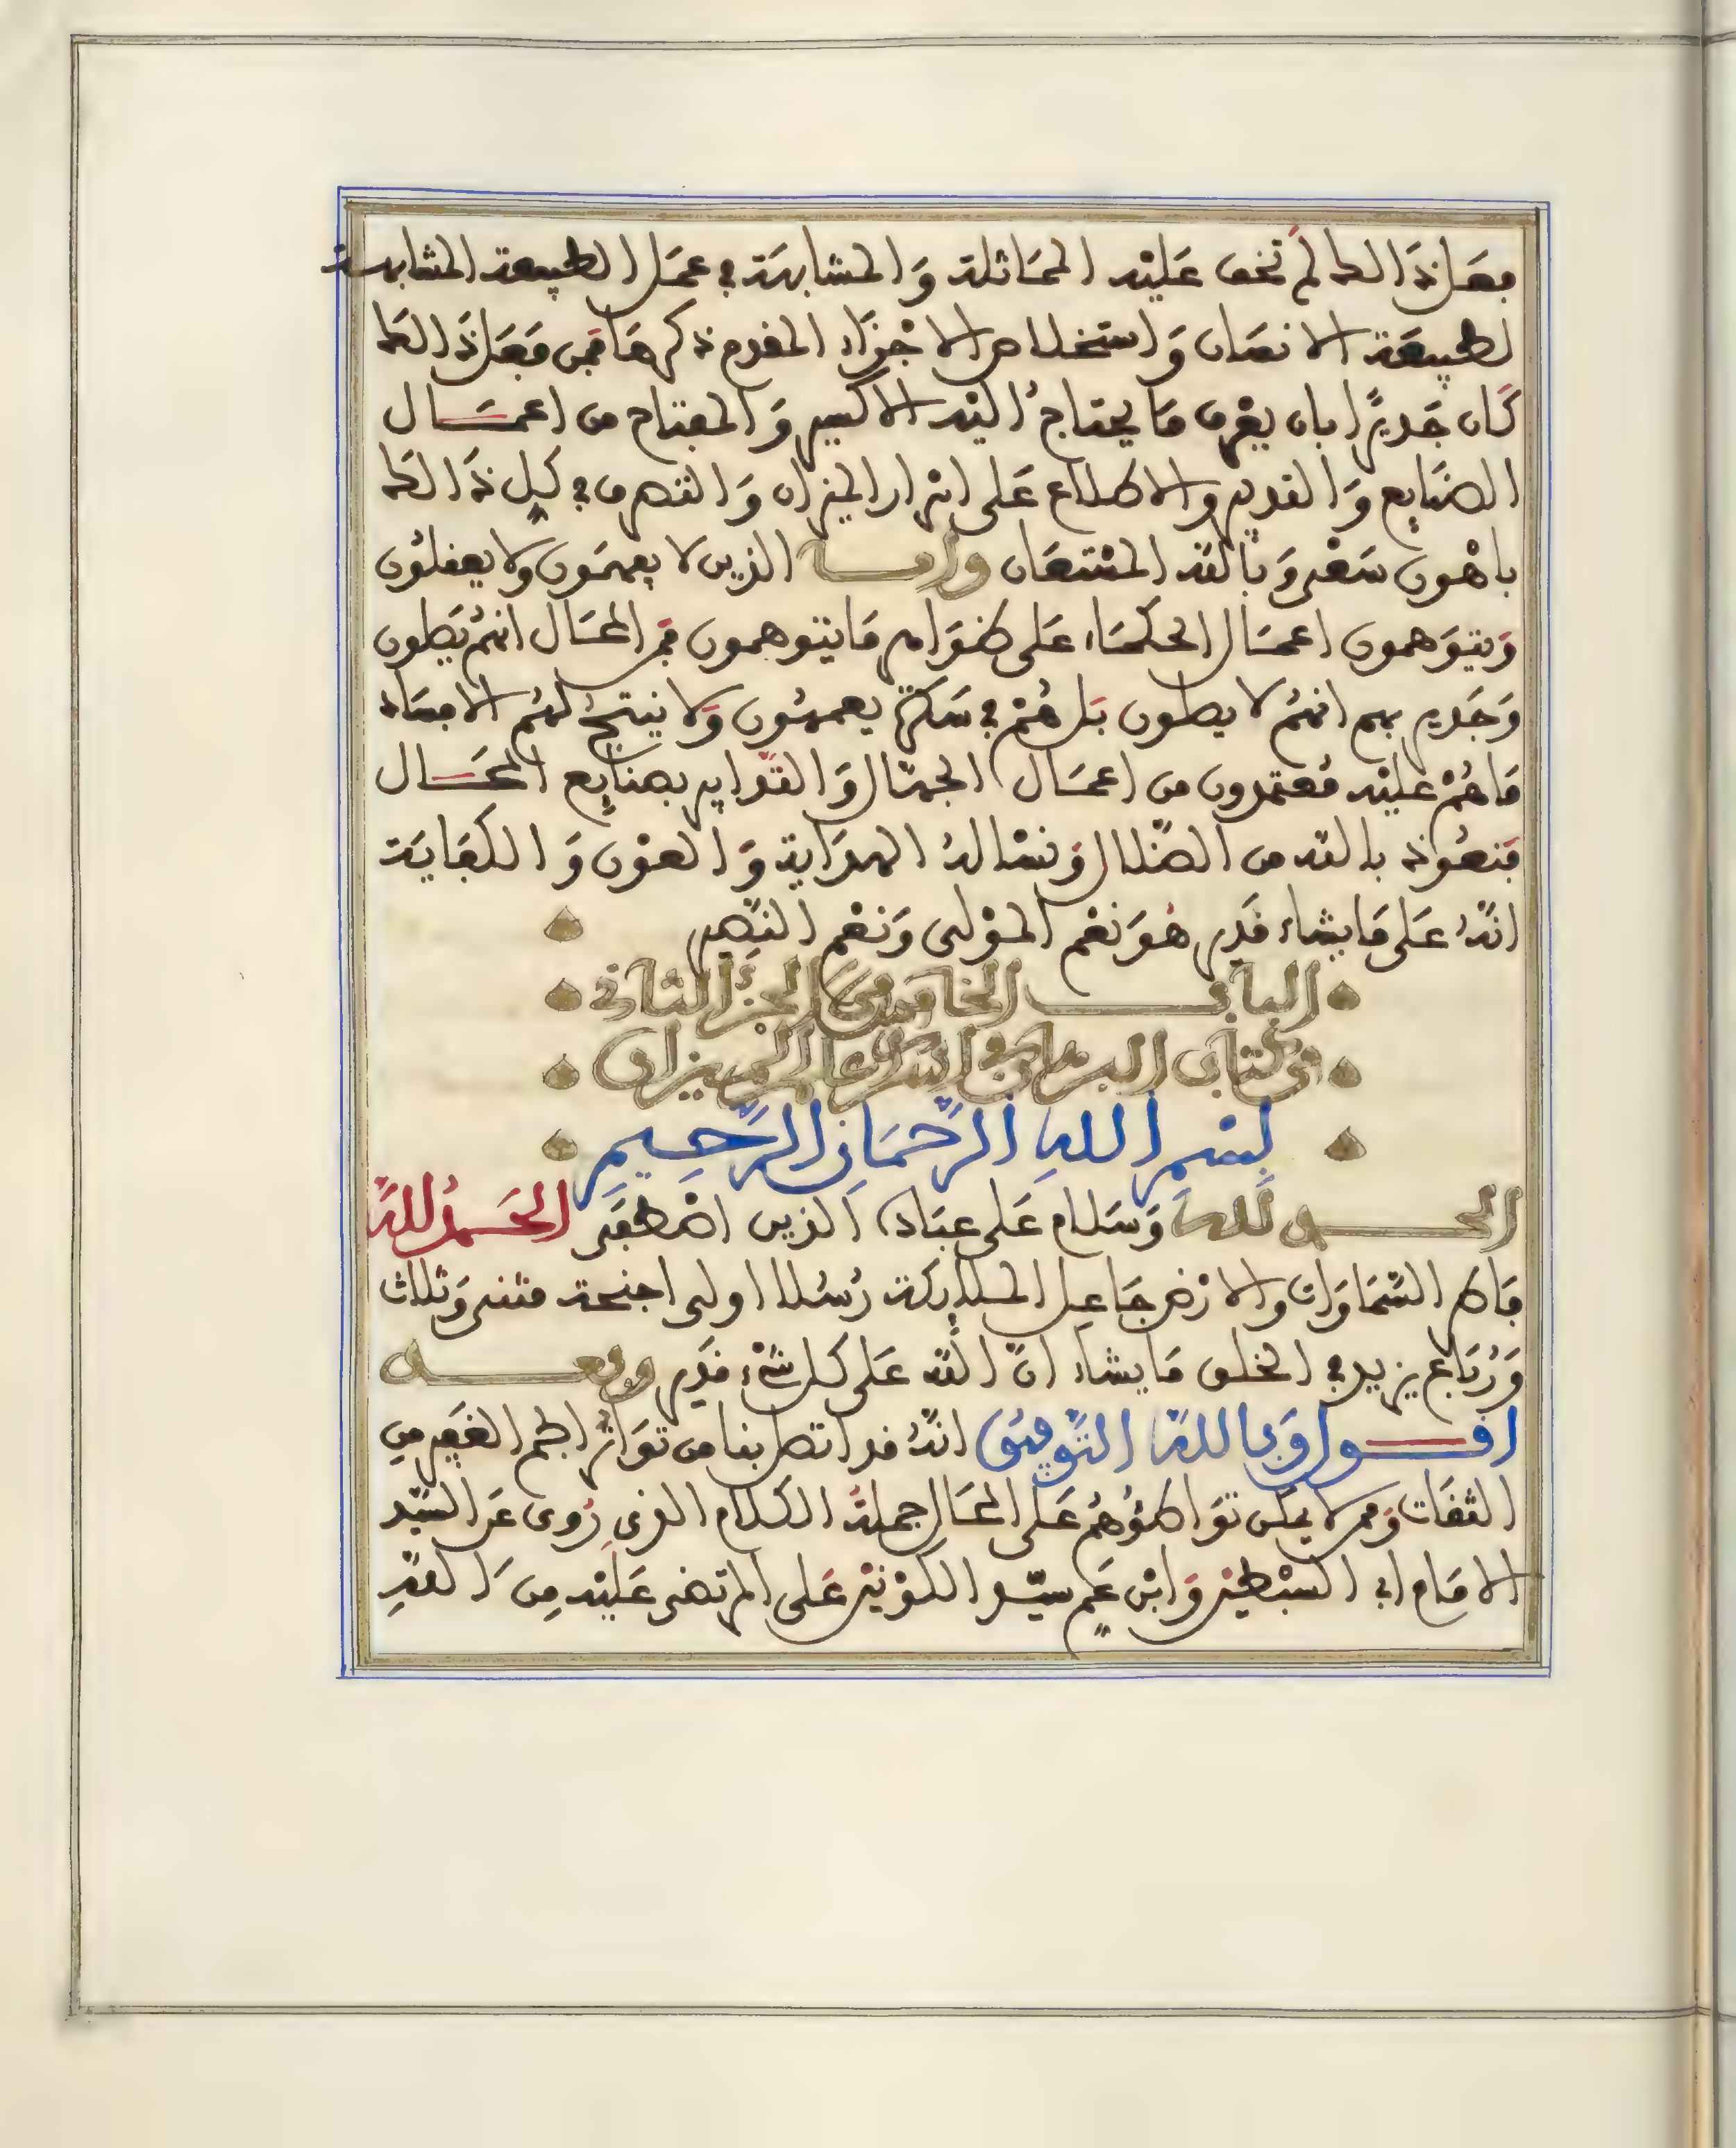 فعل ذالك لم تخف عليه المماثلة وَالمشابهة في عمل الطبيعة المشابهة
لطبيعة الانسان وَاستخلاص الاجْزَاء المقدم ذكرهَا فمن فعَل ذَالك
كَان جَديرًا بان يعْرف مَا يحتاج اليْه الاكسير وَالمفتاح من اعمَــال
الصنايع وَالتدبير والاطلاع عَلى اسْرار الميزان وَالتصرف في كل ذَالك
باهْون سَعْي وَبالله المسْتعَان وامــا الذين لا يفهمَون ولا يعقلوُن
وَيتوَهمون اعمَال الحكمَاء عَلى ظوَاهر مَا يتوهمون فمن المحَال انهمُ يَصلون
وَجَدير بهم انهمُ لا يصلون بَل همُْ في سَكرة يعمهُون وَلا ينتجُ لهمُ الا فسَاد
مَا همُْ عليْه مُعتمدون من اعمَال الجهّال وَالتدَابير بصنايع المحَــال
فنعُوذ بالله من الضّلال وَنسْالهُ الهدَاية وَالعوْن وَالكفايَة
انّهُ عَلى مَا يشاء قدَير هُوَ نعْم الموْلى وَنعْم النّصِير
البابــ الخامس من الجزء الثاني
من كتاب البرهان في اسرار علم الميزان
بسْمِ اللهِ الرَّحْمَانِ الرَّحِيمِ
الحمــد لله وَسَلام عَلى عبَاده الذين اصْطفَى الحَمدُ لله
فَاطر السّمَاوَات والارْض جَاعل الملايكة رُسُلا اولى اجنحة مثنى وَثلاث
وَرُبَاع يزيد في الخلق مَا يشاء انّ الله عَلى كل شيْء قدَير وبعــد
اقــول وَبالله التّوفيق انّهُ قد اتصل بنا من توَاتر الجم الغفير من
الثقات وَممن لا يمكن توَاطؤُهمُ عَلى المحَال جملة الكلام الذي رُوي عَن السّيّد
الامَام ابي السبْطين وَابْن عَم سيّــد الكوْنيْن عَلى المرتضى عَليْه مِن اللهِ